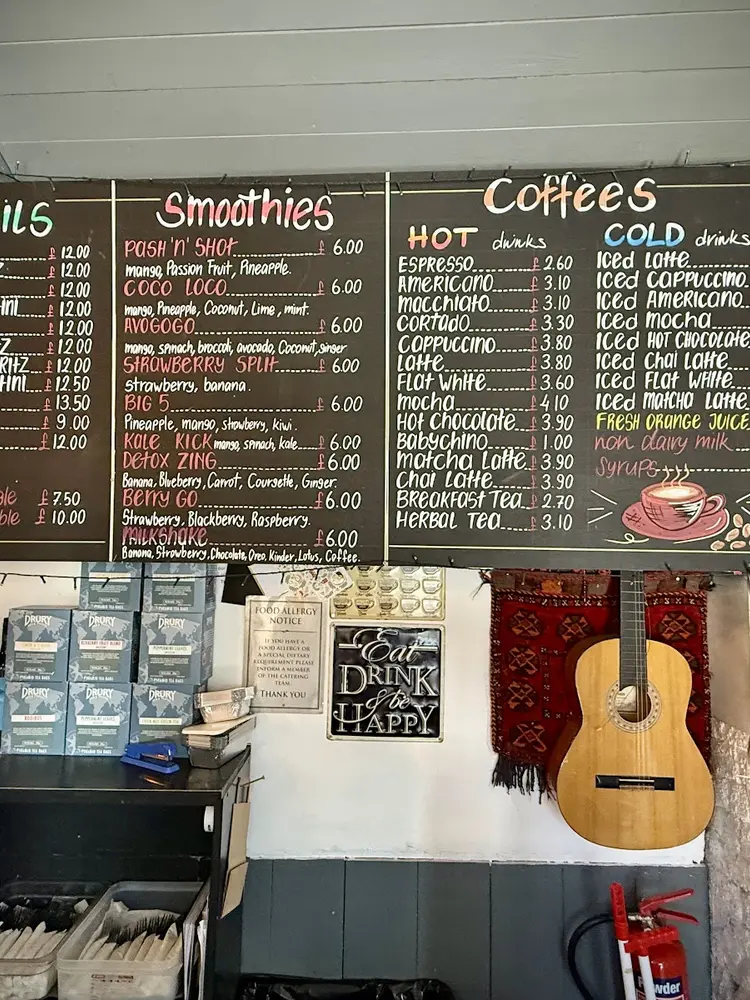 ILS
£ 12.00
£ 12.00
£ 12.00
£ 12.00
£ 12.00
£ 12.00
£ 12.50
£ 13.50
£ 9.00
£ 12.00
£ 7.50
£ 10.00
Smoothies
PASH 'N' SHOT £ 6.00
mango, Passion Fruit, Pineapple.
COCO LOCO £ 6.00
mango, Pineapple, Coconut, Lime, mint.
AVOGOGO £ 6.00
mango, spinach, broccoli, avocado, Coconut, ginger
STRAWBERRY SPLIT £ 6.00
strawberry, banana.
BIG 5 £ 6.00
Pineapple, mango, strawberry, kiwi.
KALE KICK mango, spinach, kale £ 6.00
DETOX ZING £ 6.00
Banana, Blueberry, Carrot, Courgette, Ginger.
BERRY GO £ 6.00
Strawberry, Blackberry, Raspberry.
MILKSHAKE £ 6.00
Banana, Strawberry, Chocolate, Oreo, Kinder, Lotus, Coffee.
Coffees
HOT drinks
ESPRESSO £ 2.60
AMERICANO £ 3.10
macchiato £ 3.10
CORTADO £ 3.30
CAPPUCCINO £ 3.80
LATTE £ 3.80
FLAT WHITE £ 3.60
mocha £ 4.10
HOT CHOCOLATE £ 3.90
BABYCHINO £ 1.00
MATCHA LATTE £ 3.90
CHAI LATTE £ 3.90
BREAKFAST TEA £ 2.70
HERBAL TEA £ 3.10
COLD drinks
Iced LATTE
Iced CAPPUCCINO
Iced AMERICANO
Iced mocha
Iced HOT CHOCOLATE
Iced CHAI LATTE
Iced FLAT WHITE
Iced MATCHA LATTE
FRESH ORANGE JUICE
non dairy milk
SYRUPS
FOOD ALLERGY
NOTICE
IF YOU HAVE A
FOOD ALLERGY OR
A SPECIAL DIETARY
REQUIREMENT PLEASE
INFORM A MEMBER
OF THE CATERING
TEAM.
THANK YOU
Eat
DRINK
& be
HAPPY
DRURY
DRURY
DRURY
DRURY
DRURY
DRURY